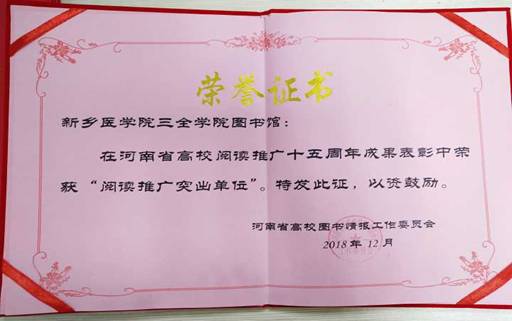 荣誉证书
新乡医学院三全学院图书馆：
在河南省高校阅读推广十五周年成果表彰中荣
获“阅读推广突出单位”。特发此证，以资鼓励。
河南省高校图书情报工作委员会
2018年12月